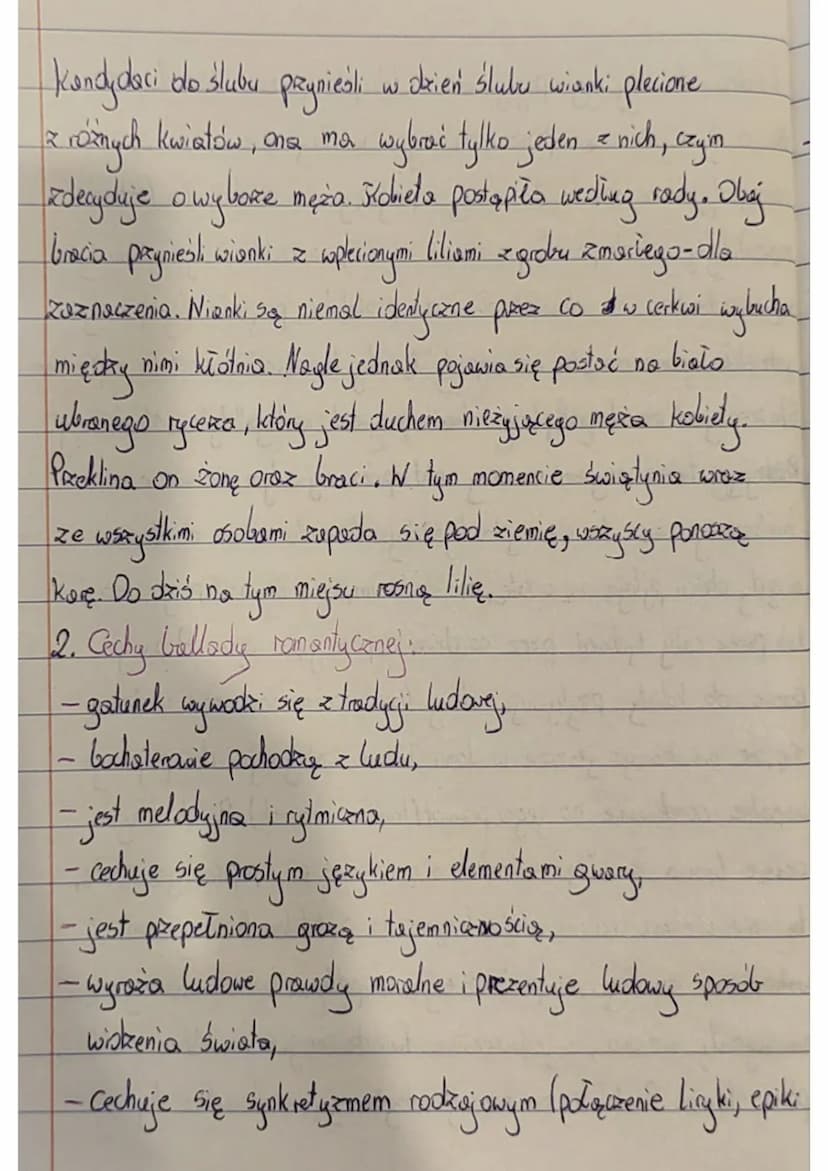 Kandydaci do ślubu przynieśli w dzień ślubu wianki plecione
z różnych kwiatów, ona ma wybrać tylko jeden z nich, czym
zdecyduje o wyborze męża. Kobieta postąpiła według rady. Obaj
bracia przynieśli wianki z wplecionymi liliami z grobu zmarłego-dla
zaznaczenia. Wianki są niemal identyczne przez co w cerkwi wybucha
między nimi kłótnia. Nagle jednak pojawia się postać na biało
ubranego rycerza, który jest duchem nieżyjącego męża kobiety.
Przeklina on żonę oraz braci. W tym momencie świątynia wraz
ze wszystkimi osobami zapada się pod ziemię, wszyscy ponoszą
karę. Do dziś na tym miejsu rosną lilię.
2. Cechy ballady romantycznej:
- gatunek wywodzi się z tradycji ludowej,
- bohaterowie pochodzą z ludu,
- jest melodyjna i rytmiczna,
- cechuje się prostym językiem i elementami gwary,
- jest przepełniona grozą i tajemniczością,
- wyraża ludowe prawdy moralne i prezentuje ludowy sposób
widzenia świata,
- cechuje się synkretyzmem rodzajowym (połączenie liryki, epiki